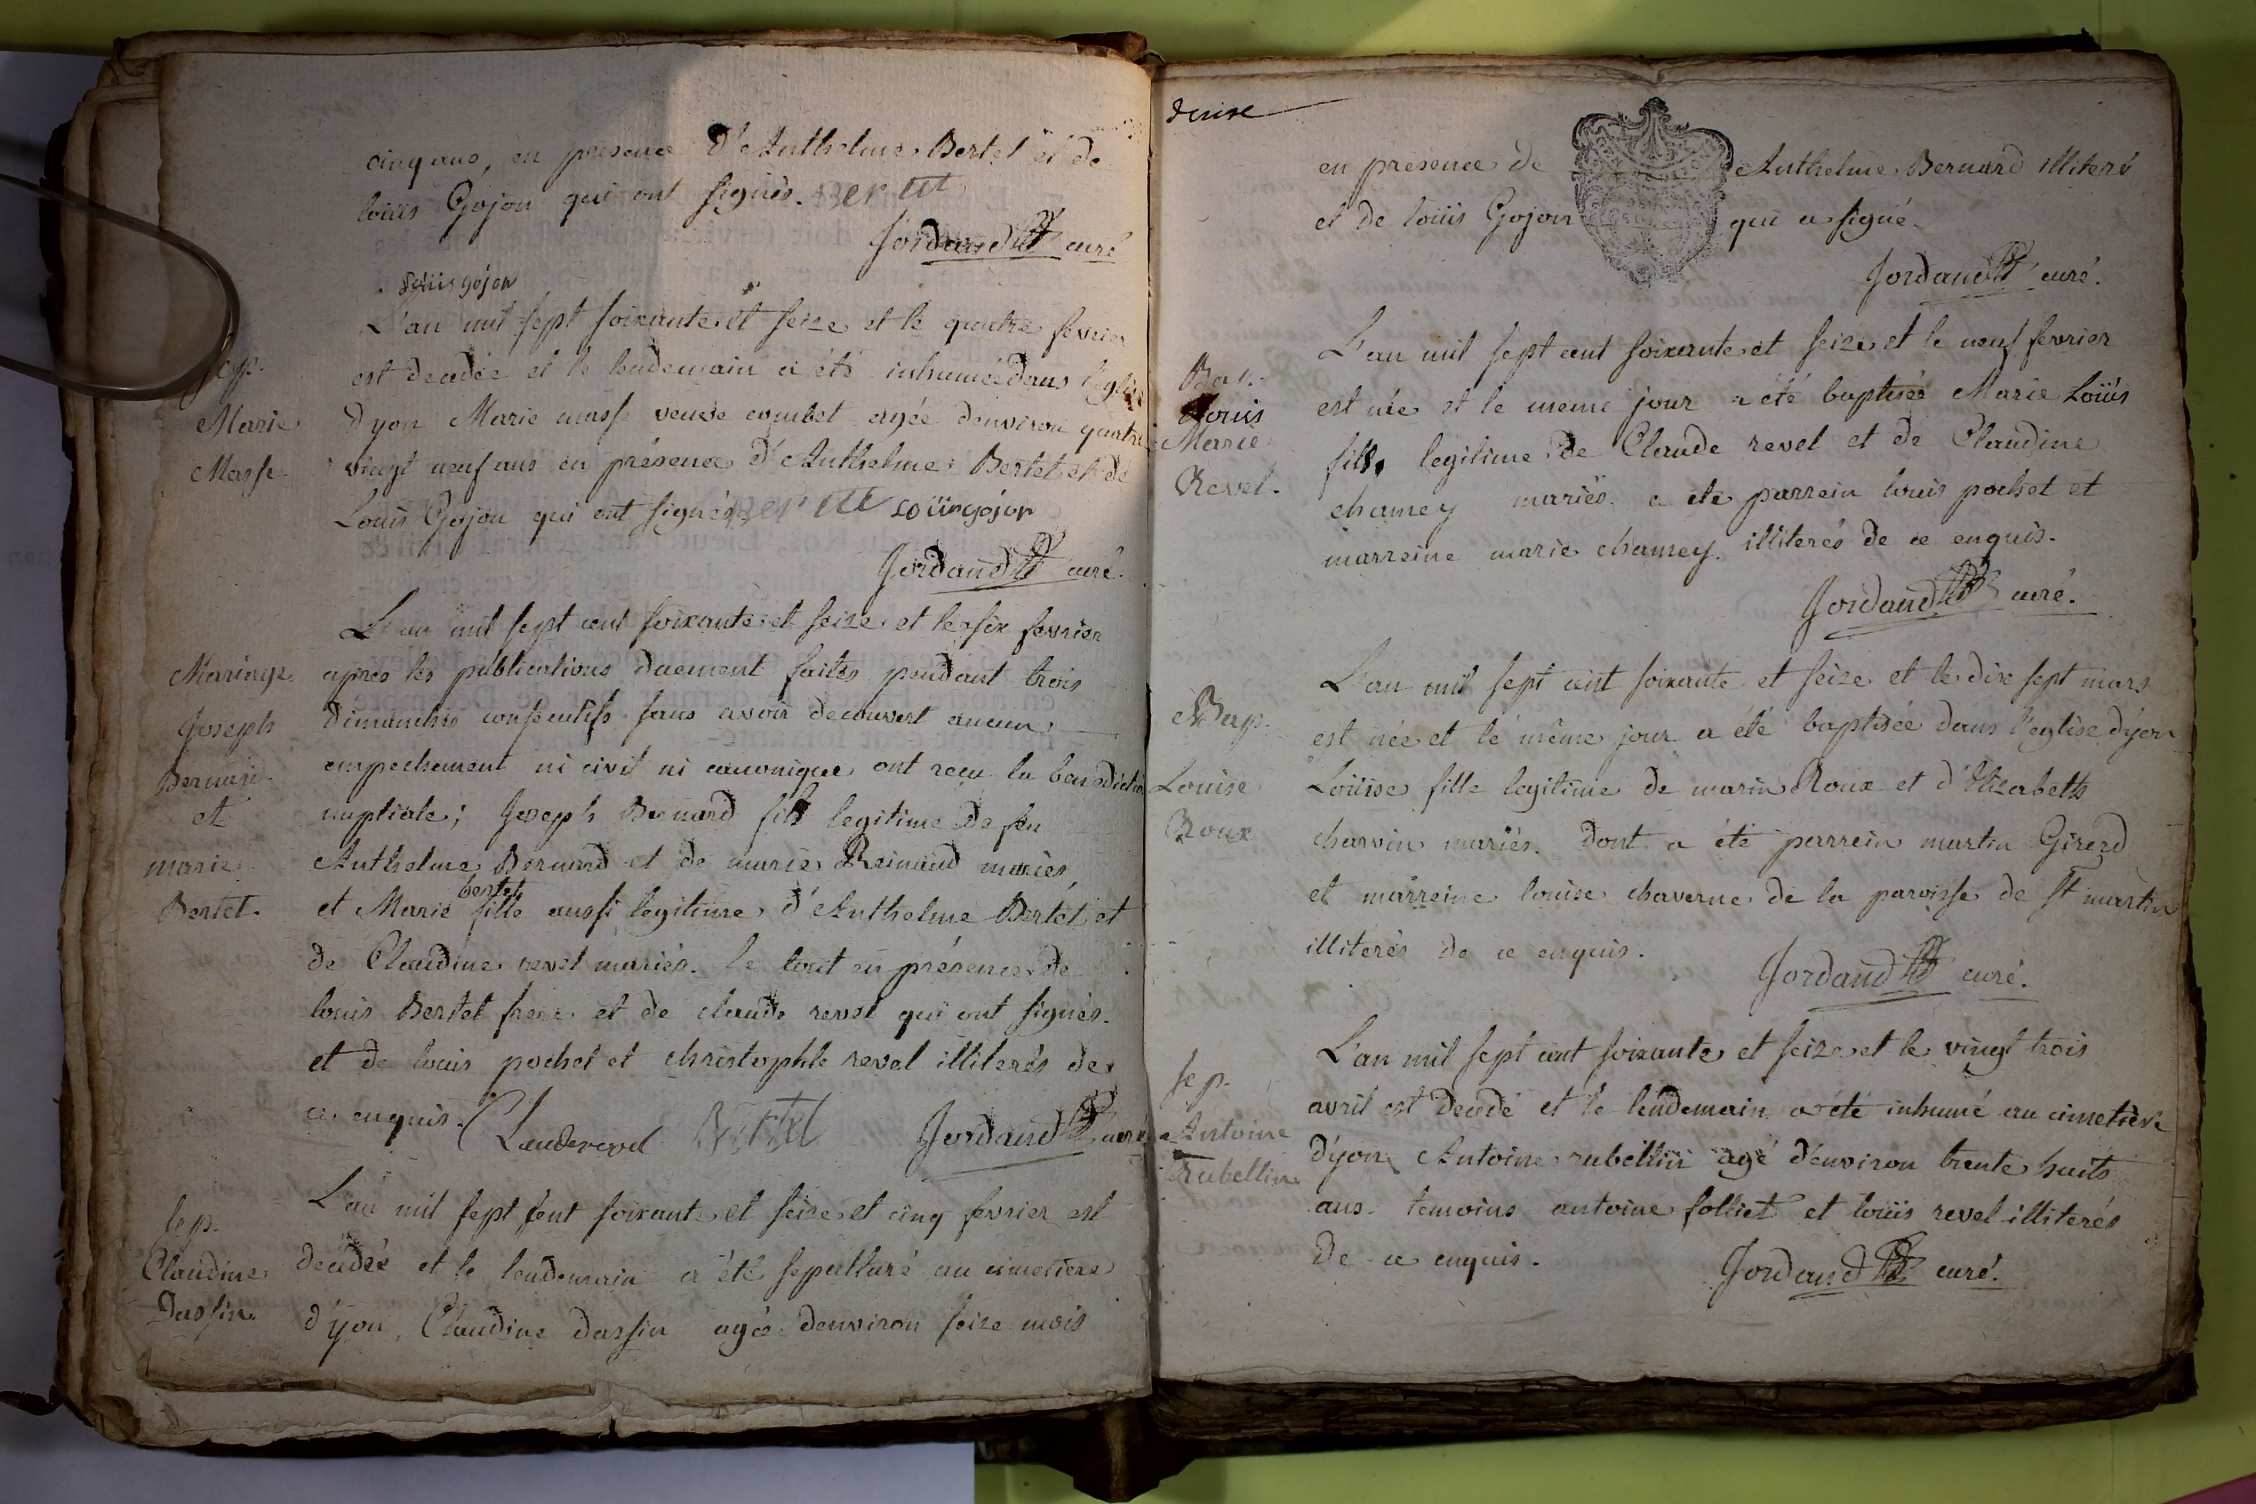 cinq ans, en presence d'Anthelme Bertet et de
loüis Gojon qui ont signés. Bertet
Jordand curé
loüis gojon
L'an mil sept soixante et seize et le quatre fevrier
Sep.
est decedée et le lendemain a été inhumée dans l'eglise
Marie
dyon Marie masse veuve combet agée denviron quatre
Masse
vingt neuf ans en présence d'Anthelme Bertet et de
Louis Gojon qui ont signés Bertet loüis gojon
Jordand curé.
L'an mil sept cent soixante et seize et le six fevrier
Mariage
apres les publications duement faites pendant trois
Joseph
dimanches consecutifs sans avoir decouvert aucun
Bernard
empechement ni civil ni canonique ont reçu la benediction
et
nuptiale; Joseph Bernard fils legitime de feu
marie
Anthelme Bernard et de marie Reinaud mariés
bertet
Bertet.
et Marie fille aussi legitime d'Anthelme Bertet et
de Claudine revel mariés. le tout en présence de
louis Bertet frere et de claude revel qui ont signés.
et de louis pochet et christophle revel illiterés de
ce enquis. Clauderevel Bertet Jordand curé
L'an mil sept sent soixante et seize et cinq fevrier est
Sep.
Claudine
decedée et le lendemain a été sepulturé au cimetiere
Dassin.
d'yon, Claudine dassin agée denviron seize mois
douse
en presence de Anthelme Bernard illiteré
et de loüis Gojon qui a signé.
Jordand curé.
L'an mil sept cent soixante et seize et le neuf fevrier
Bap.
Louis
est née et le meme jour a été baptisée Marie Loüis
Marie
fils legitime de Claude revel et de Claudine
Revel.
chamey mariés. a été parrein louis pochet et
marreine marie chamey. illiterés de ce enquis.
Jordand curé.
L'an mil sept cent soixante et seize et le dix sept mars
Bap.
est née et le même jour a été baptisée dans l'eglise d'yon
Louise
Loüise fille legitime de marin Roux et d'Elizabeth
Roux
charvin mariés. Dont a été parrein martin Girerd
et marreine louise chaverne de la paroisse de st martin
illiterés de ce enquis.
Jordand curé.
L'an mil sept cent soixante et seize et le vingt trois
Sep.
avril est decedé et le lendemain a été inhumé au cimetiere
Antoine
d'yon Antoine rubellin agé d'environ trente huits
Rubellin
ans. temoins antoine folliet et loüis revel illiterés
de ce enquis.
Jordand curé.